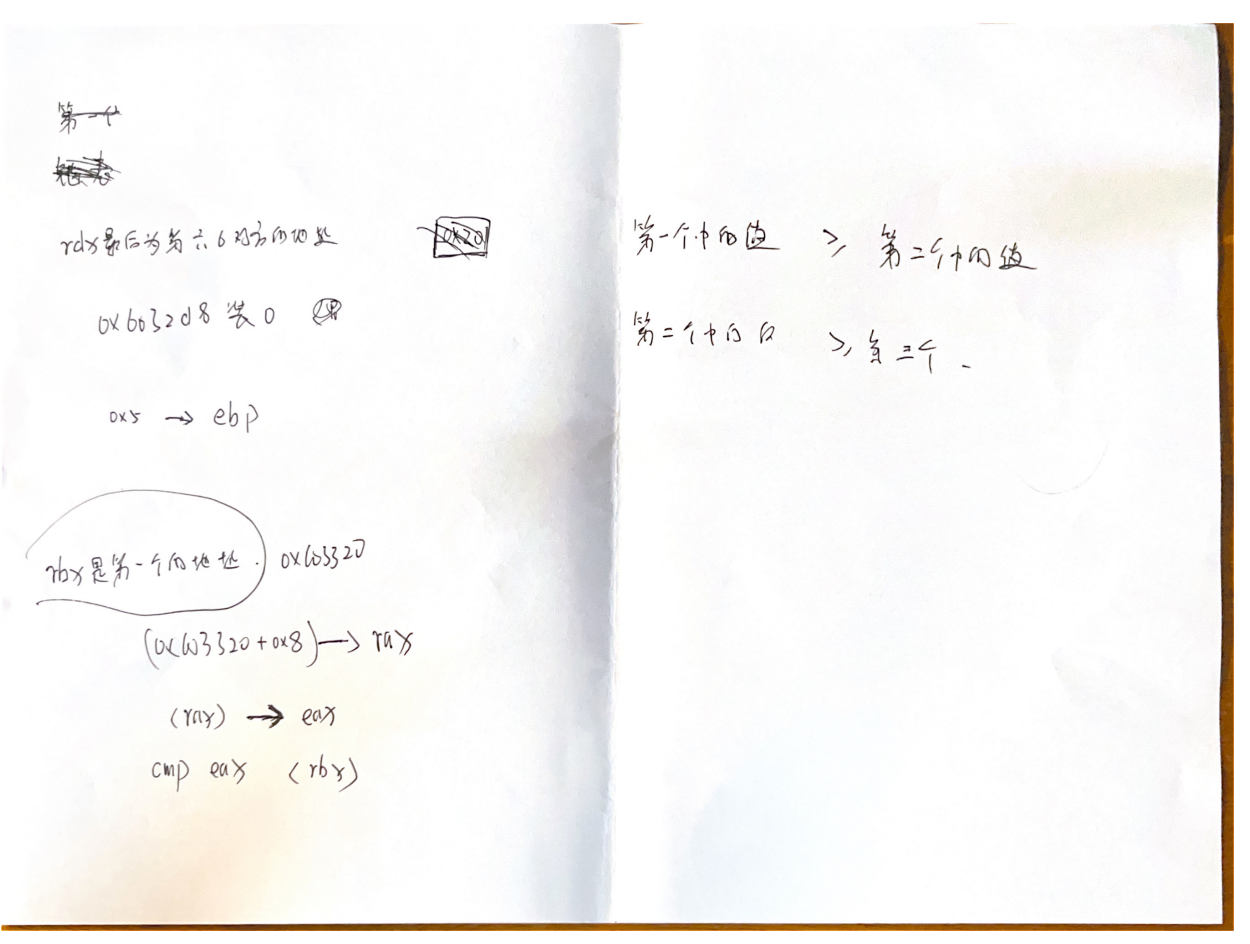 rdx最后为第六6对应的地址
0x6032d8 装0
0x5 → ebp
rbx是第一个的地址. 0x603320
(0x603320+0x8) → rax
(rax) → eax
cmp eax (rbx)
第一个中的值 ≥ 第二个中的值
第二个中的 ≥ 第三个.